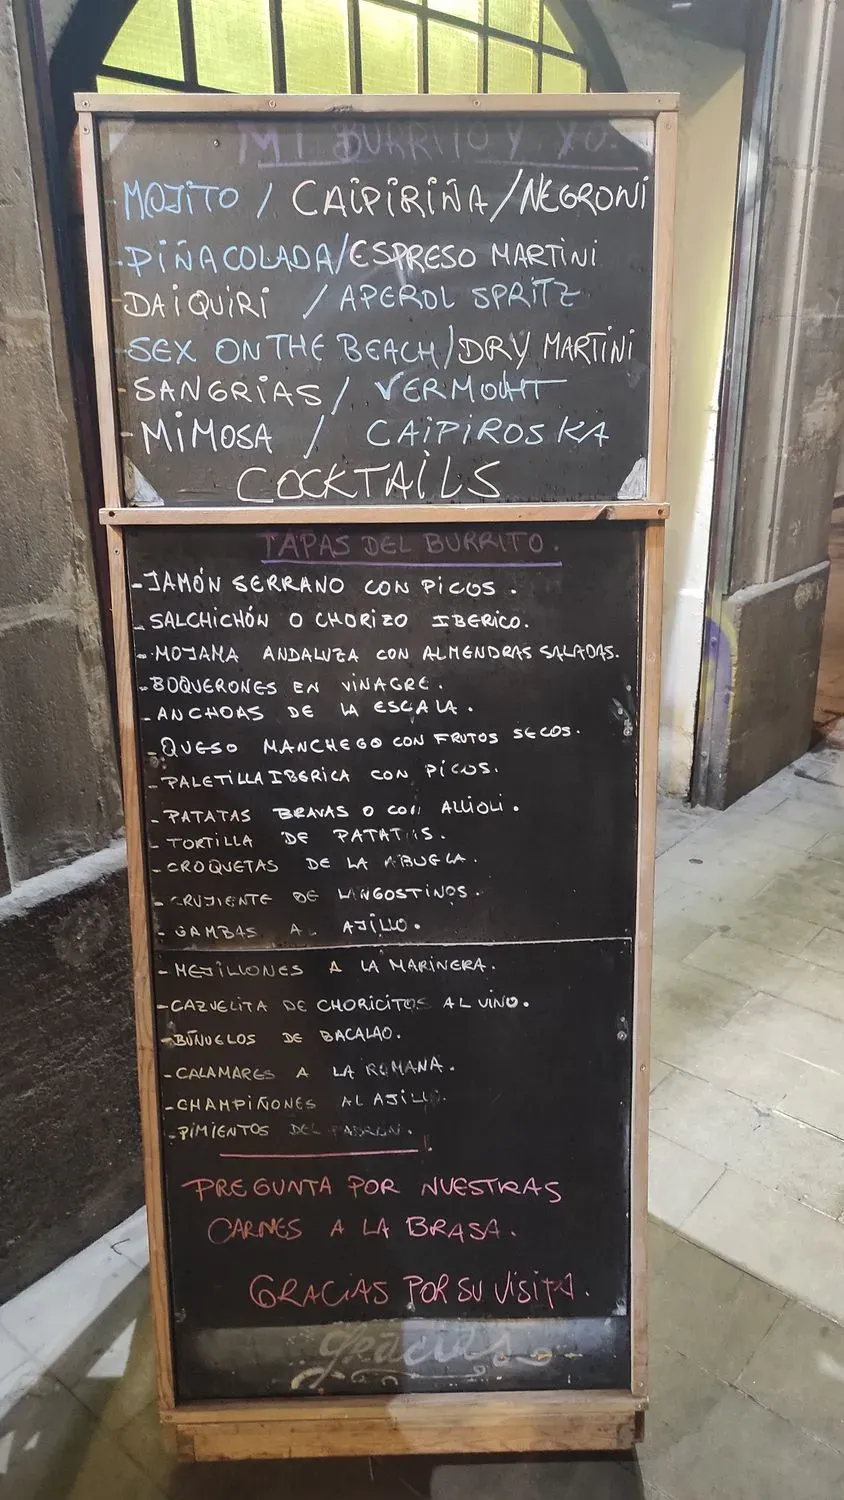 MI BURRITO Y YO.
MOJITO / CAIPIRIÑA/NEGRONI
-PIÑACOLADA/ESPRESO MARTINI
DAIQUIRI / APEROL SPRITZ
-SEX ON THE BEACH/DRY MARTINI
-SANGRIAS/ VERMOUHT
-MIMOSA / CAIPIROSKA
COCKTAILS
TAPAS DEL BURRITO.
-JAMÓN SERRANO CON PICOS.
-SALCHICHÓN O CHORIZO IBERICO.
-MOJAMA ANDALUZA CON ALMENDRAS SALADAS.
-BOQUERONES EN VINAGRE.
-ANCHOAS DE LA ESCALA.
-QUESO MANCHEGO CON FRUTOS SECOS.
-PALETILLA IBERICA CON PICOS.
-PATATAS BRAVAS O CON ALLIOLI.
-TORTILLA DE PATATAS.
-CROQUETAS DE LA ABUELA.
-CRUJIENTE DE LANGOSTINOS.
-GAMBAS AL AJILLO.
-MEJILLONES A LA MARINERA.
-CAZUELITA DE CHORICITOS AL VINO.
-BUÑUELOS DE BACALAO.
-CALAMARES A LA ROMANA.
-CHAMPIÑONES AL AJILLO.
-PIMIENTOS DEL PADRON.
PREGUNTA POR NUESTRAS
CARNES A LA BRASA.
GRACIAS POR SU VISITA.
gracias